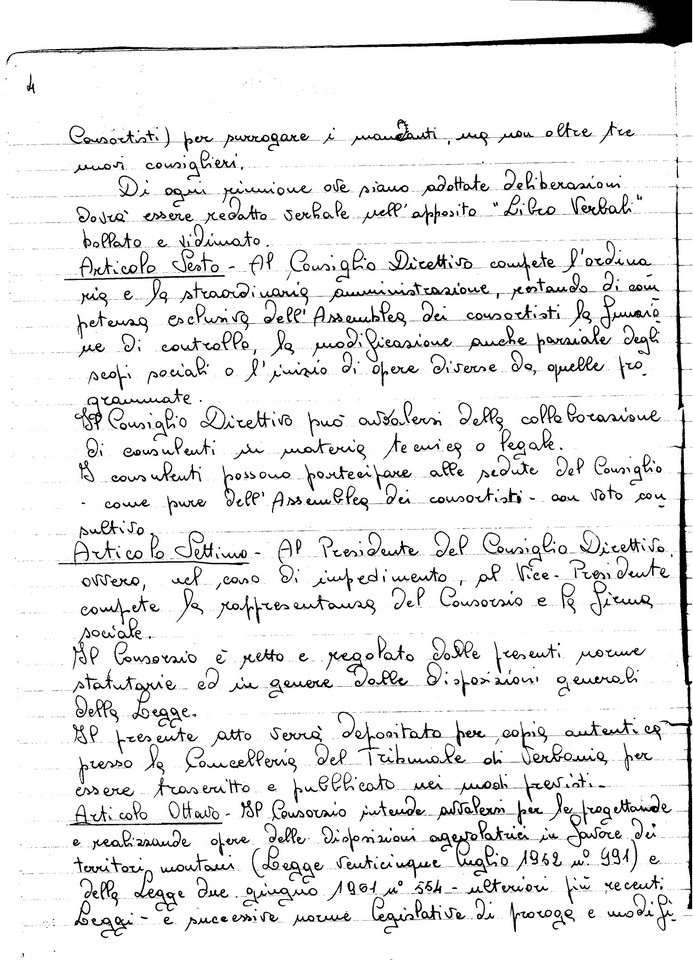 4
Consortisti) per surrogare i mancanti, ma non oltre tre
nuovi consiglieri.
Di ogni riunione ove siano adottate deliberazioni
dovrà essere redatto verbale nell'apposito "Libro Verbali"
bollato e vidimato.
Articolo Sesto - Al Consiglio Direttivo compete l'ordina
ria e la straordinaria amministrazione, restando di com
petenza esclusiva dell'Assemblea dei consortisti la funzio
ne di controllo, la modificazione anche parziale degli
scopi sociali o l'inizio di opere diverse da quelle pro
grammate.
Il Consiglio Direttivo può avvalersi della collaborazione
di consulenti in materia tecnica o legale.
I consulenti possono partecipare alle sedute del Consiglio
- come pure dell'Assemblea dei consortisti - con voto con
sultivo.
Articolo Settimo - Al Presidente del Consiglio Direttivo
ovvero, nel caso di impedimento, al Vice-Presidente
compete la rappresentanza del Consorzio e la firma
sociale.
Il Consorzio è retto e regolato dalle presenti norme
statutarie ed in genere dalle disposizioni generali
della Legge.
Il presente atto verrà depositato per copia autentica
presso la Cancelleria del Tribunale di Verbania per
essere trascritto e pubblicato nei modi previsti.-
Articolo Ottavo - Il Consorzio intende avvalersi per le progettande
e realizzande opere delle disposizioni agevolatrici in favore dei
territori montani (Legge venticinque luglio 1952 n° 991) e
della Legge due giugno 1961 n° 454 - ulteriori più recenti
Leggi - e successive norme legislative di proroga e modifi-